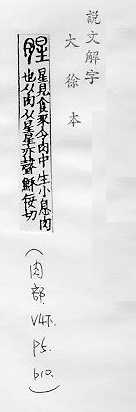 說文解字
大徐本
腥 星見食豕令肉中生小息肉
也从肉从星星亦聲穌佞切
(肉部.V4下.P5.b10.)